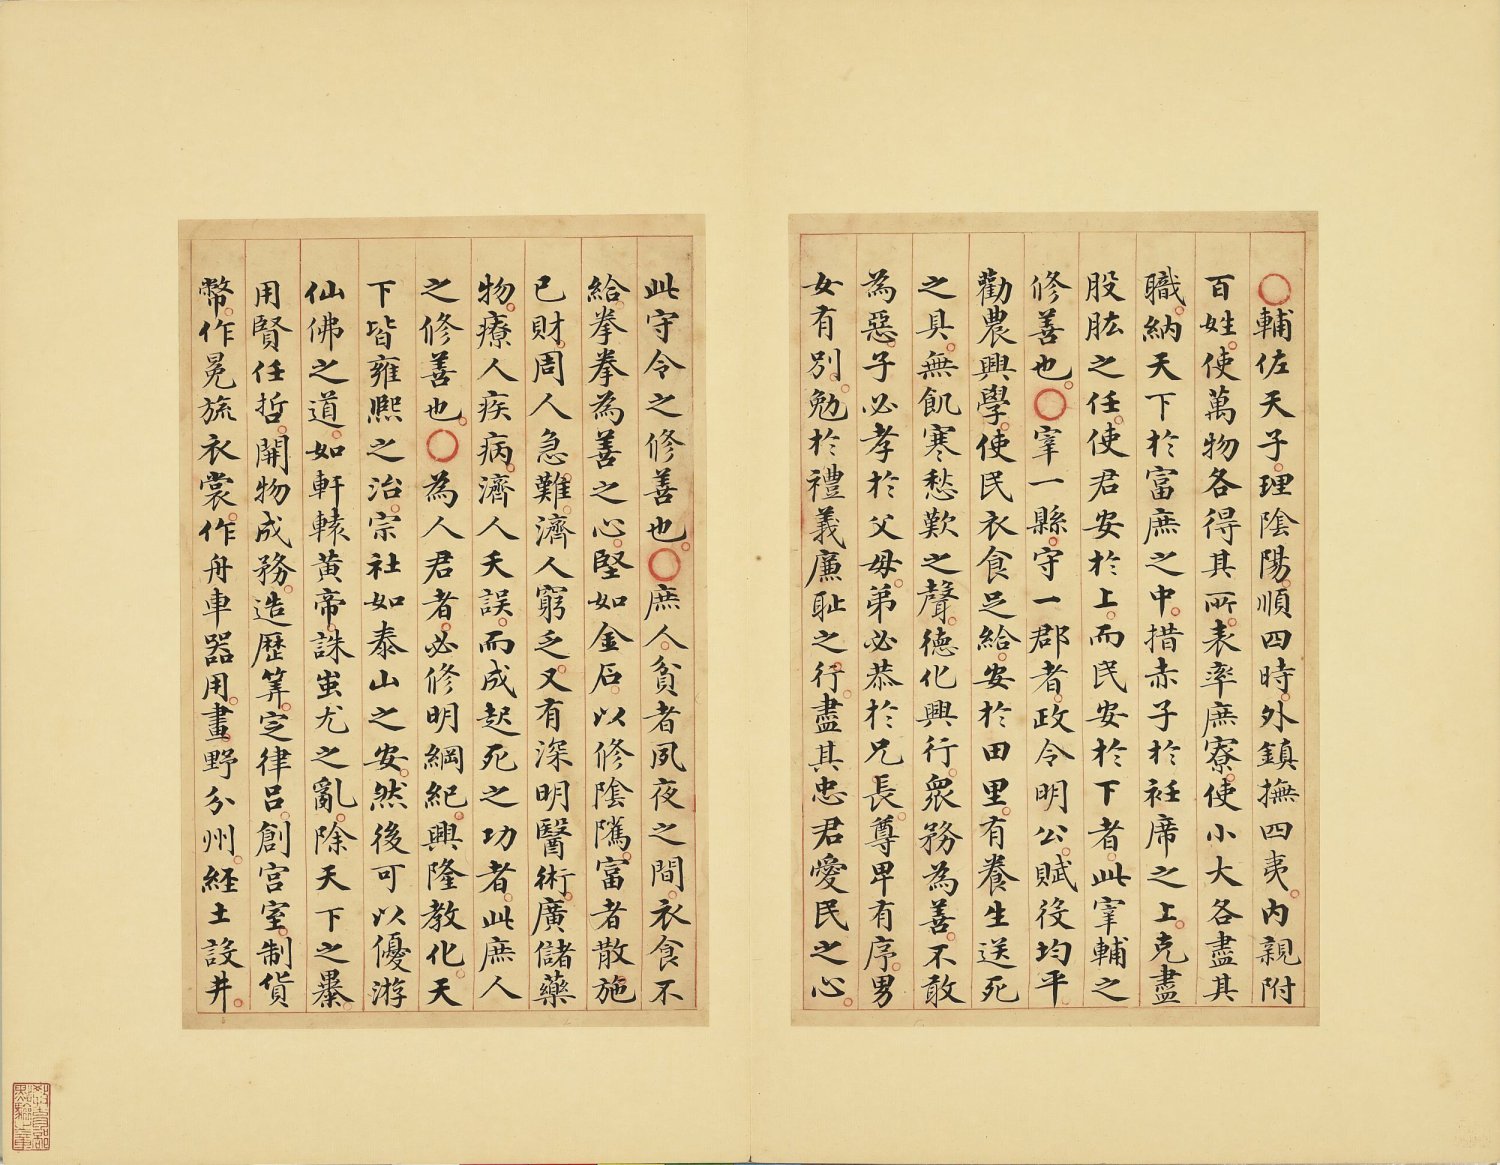 ○輔佐天子。理陰陽。順四時。外鎮撫四夷。內親附
百姓。使萬物各得其所。表率庶寮。使小大各盡其
職。納天下於富庶之中。措赤子於衽席之上。克盡
股肱之任。使君安於上。而民安於下者。此宰輔之
修善也。○宰一縣。守一郡者。政令明公。賦役均平。
勸農興學。使民衣食足給。安於田里。有養生送死
之具。無飢寒愁歎之聲。德化興行。眾務為善。不敢
為惡。子必孝於父母。弟必恭於兄長。尊卑有序。男
女有別。勉於禮義廉恥之行。盡其忠君愛民之心。
此守令之修善也。○庶人。貧者夙夜之間。衣食不
給。拳拳為善之心。堅如金石。以修陰隲。富者散施
己財。周人急難。濟人窮乏。又有深明醫術。廣儲藥
物。療人疾病。濟人夭誤。而成起死之功者。此庶人
之修善也。○為人君者。必修明綱紀。興隆教化。天
下皆雍熙之治。宗社如泰山之安。然後可以優游
仙佛之道。如軒轅黃帝。誅蚩尤之亂。除天下之暴。
用賢任哲。開物成務。造歷筭。定律呂。創宮室。制貨
幣。作冕旒衣裳。作舟車器用。畫野分州。經土設井。